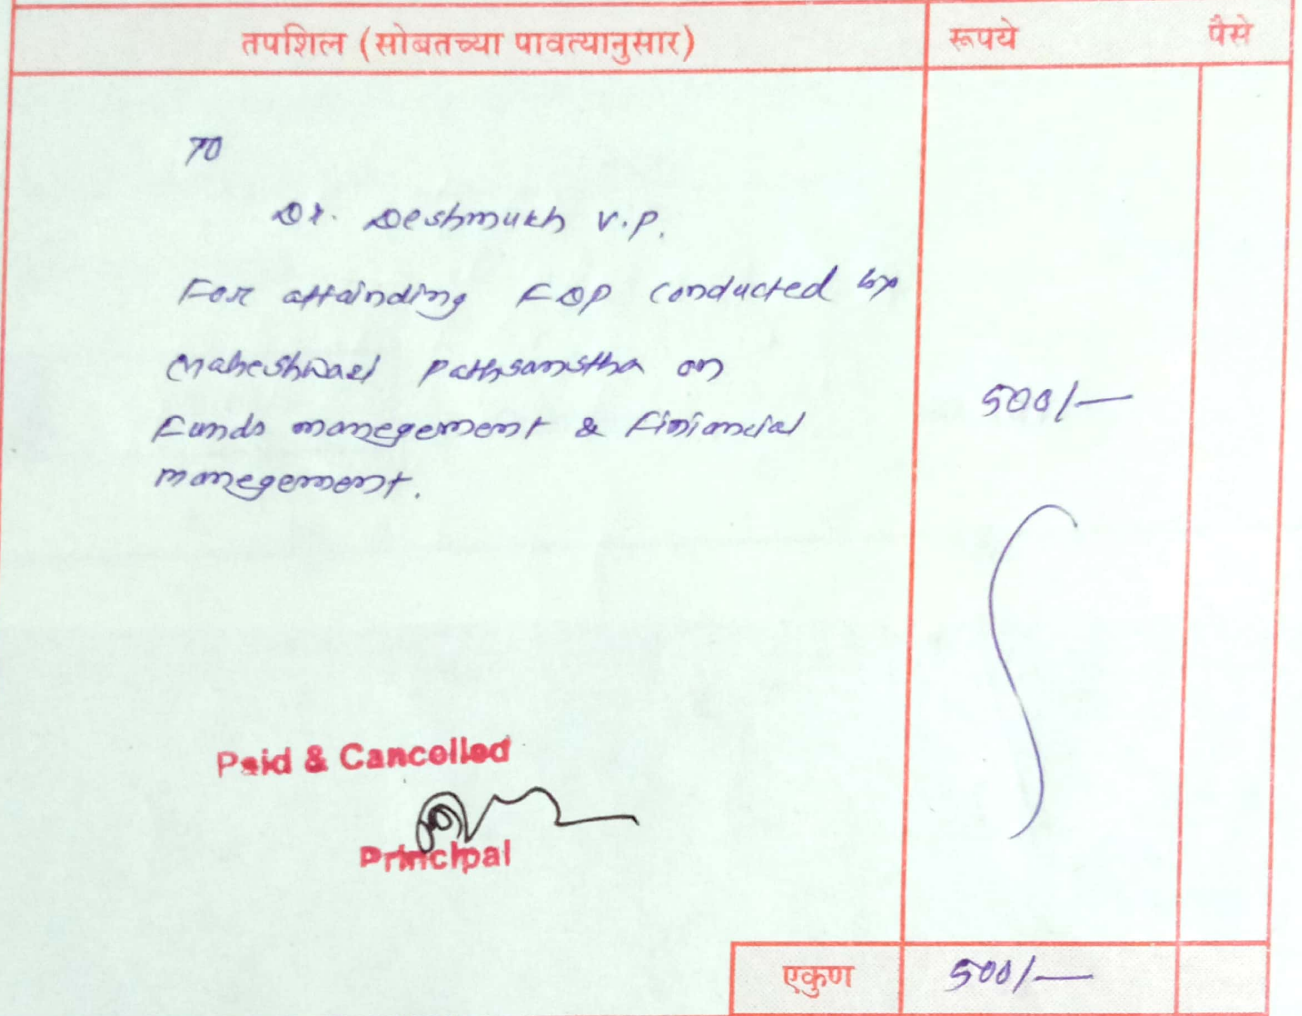 तपशिल (सोबतच्या पावत्यानुसार) रूपये पैसे
To
Dr. Deshmukh V.P.
For attainding FDP conducted by
Maheshwari Pathsamstha on
Funds manegement & Finiancial
manegement.
500/-
Paid & Cancelled
Principal
एकुण 500/-